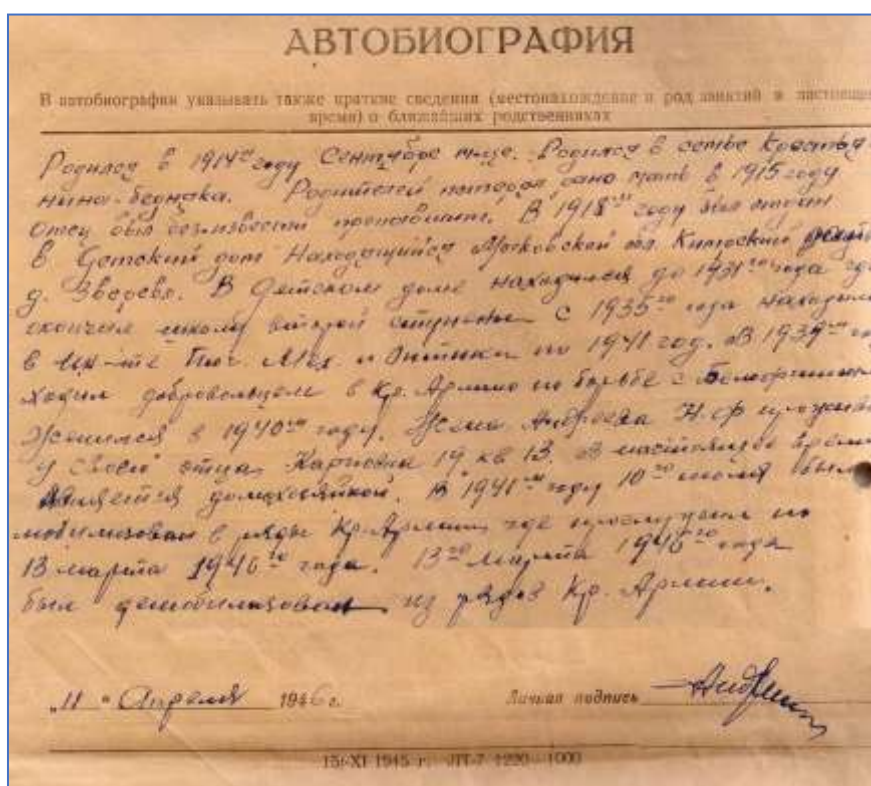 АВТОБИОГРАФИЯ
В автобиографии указывать также краткие сведения (местонахождение и род занятий в настоящее
время) о ближайших родственниках
Родился в 1914го году Сентябре м-це. Родился в семье Крестья
нина-бедняка. Родителей потерял рано мать в 1915 году
Отец был безизвести пропавшим. В 1918го году был отдан
в Детский дом Находящийся Московской обл.
д. Зверево. В Детском доме находился до 1931го года где
окончил школу второй ступени с 1935го года находился
в ин-те Точ. Мех. и Оптики по 1941 год. В 1939го
ходил добровольцем в Кр. Армию по борьбе с Белофинн
Женился в 1940го году. Жена Андреева Н.Ф прожива
у своего отца, Карповка 19. кв 13. В настоящее время
является домохозяйкой. В 1941го году 10го июля был
мобилизован в ряды Кр. Армии, где прослужил по
13 марта 1946го года. 13го Марта 1946го года
был демобилизован из рядов Кр. Армии.
„11" Апреля 1946 г. Личная подпись
15-XI 1945 г. ЛТ-7 1220-1000